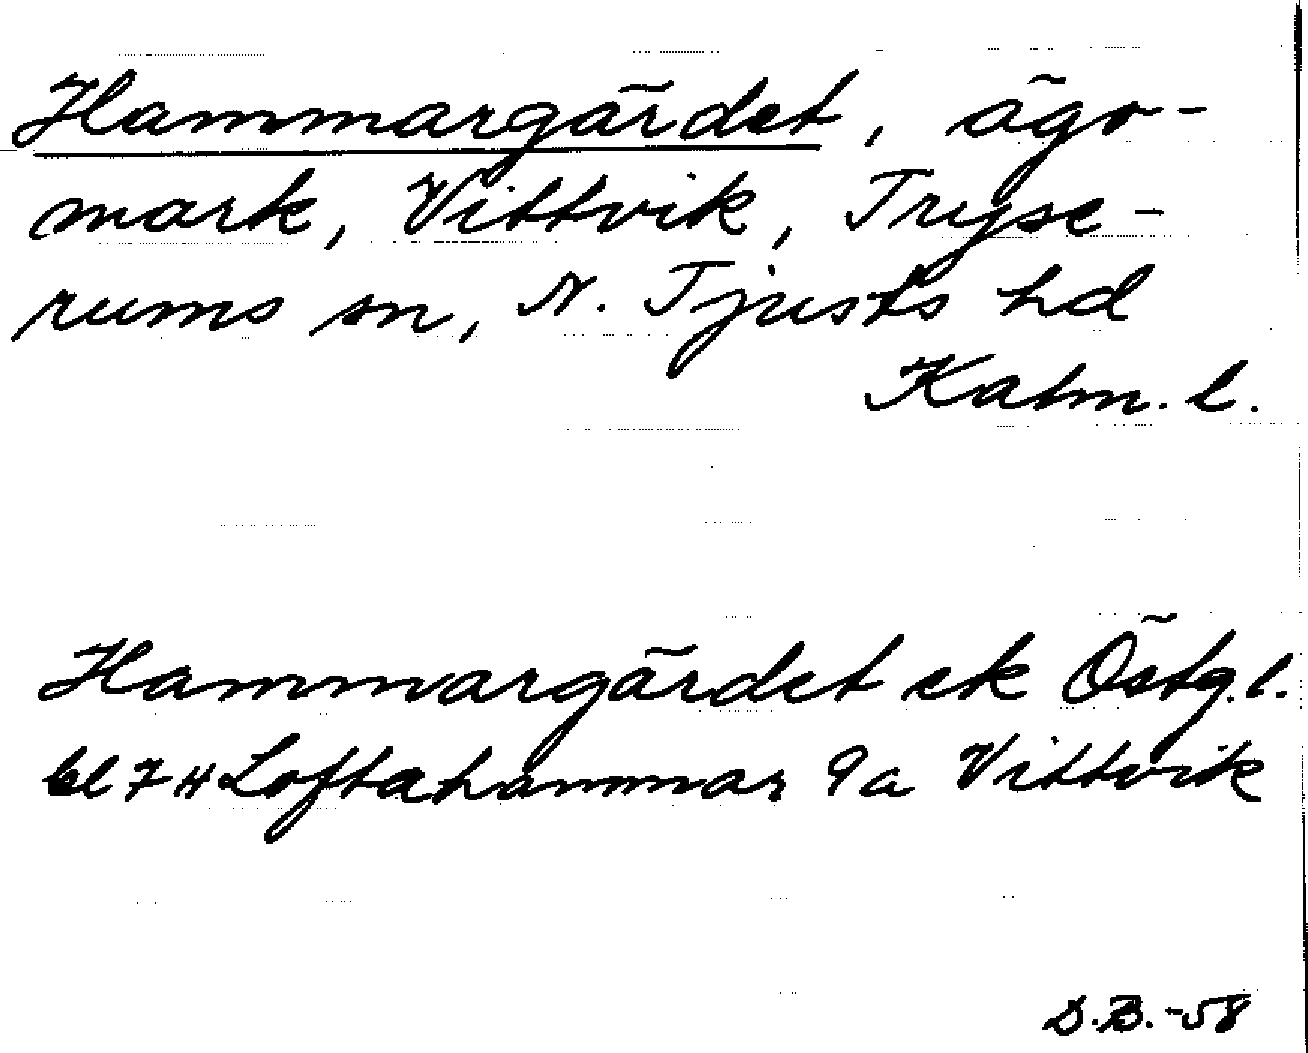 Hammargärdet, ägo-
mark, Vittvik, Tryse-
rums sn, N. Tjusts hd
Kalm. l.
Hammargärdet ek Östg. l.
bl 7 H Loftahammar 9a Vittvik
D.B.-58